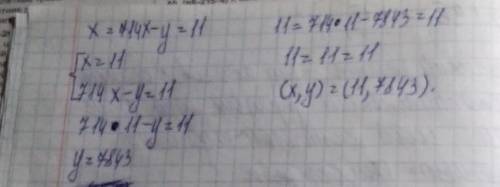 x = 714x - y = 11
{x = 11
714x - y = 11
714 • 11 - y = 11
y = 7843
11 = 714 • 11 - 7843 = 11
11 = 11 = 11
(x, y) = (11, 7843).